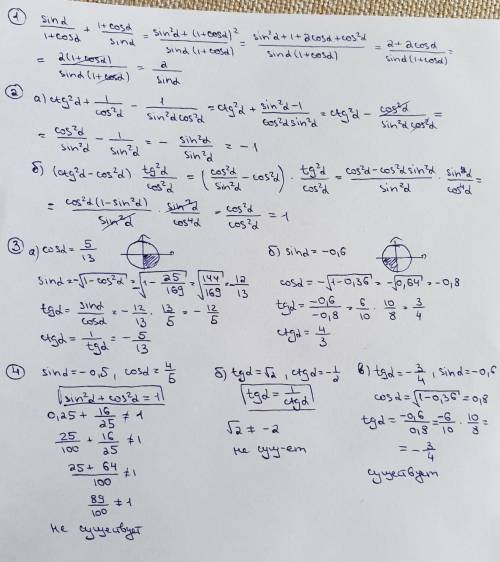 1 sinα/(1+cosα) + (1+cosα)/sinα = (sin²α+(1+cosα)²)/(sinα(1+cosα)) = (sin²α+1+2cosα+cos²α)/(sinα(1+cosα)) = (2+2cosα)/(sinα(1+cosα)) =
= 2(1+cosα)/(sinα(1+cosα)) = 2/sinα
2 а) ctg²α + 1/cos²α - 1/(sin²αcos²α) = ctg²α + (sin²α-1)/(cos²αsin²α) = ctg²α - cos²α/(sin²αcos²α) =
= cos²α/sin²α - 1/sin²α = - sin²α/sin²α = -1
б) (ctg²α-cos²α) tg²α/cos²α = (cos²α/sin²α - cos²α) · tg²α/cos²α = (cos²α-cos²αsin²α)/sin²α · sin²α/cos⁴α =
= cos²α(1-sin²α)/sin²α · sin²α/cos⁴α = cos²α/cos²α = 1
3 а) cosα = 5/13
sinα = -√(1-cos²α) = -√(1-25/169) = √(144/169) = -12/13
tgα = sinα/cosα = -12/13 · 13/5 = -12/5
ctgα = 1/tgα = -5/13
б) sinα = -0,6
cosα = -√(1-0,36) = -√(0,64) = -0,8
tgα = -0,6/-0,8 = 6/10 · 10/8 = 3/4
ctgα = 4/3
4 sinα = -0,5, cosα = 4/5
sin²α+cos²α=1
0,25 + 16/25 ≠ 1
25/100 + 16/25 ≠ 1
(25+64)/100 ≠ 1
89/100 ≠ 1
не существует
б) tgα = √2, ctgα = -1/2
tgα = 1/ctgα
√2 ≠ -2
не сущ-ет
в) tgα = -3/4, sinα = -0,6
cosα = √(1-0,36) = 0,8
tgα = -0,6/0,8 = -6/10 · 10/8 =
= -3/4
существует